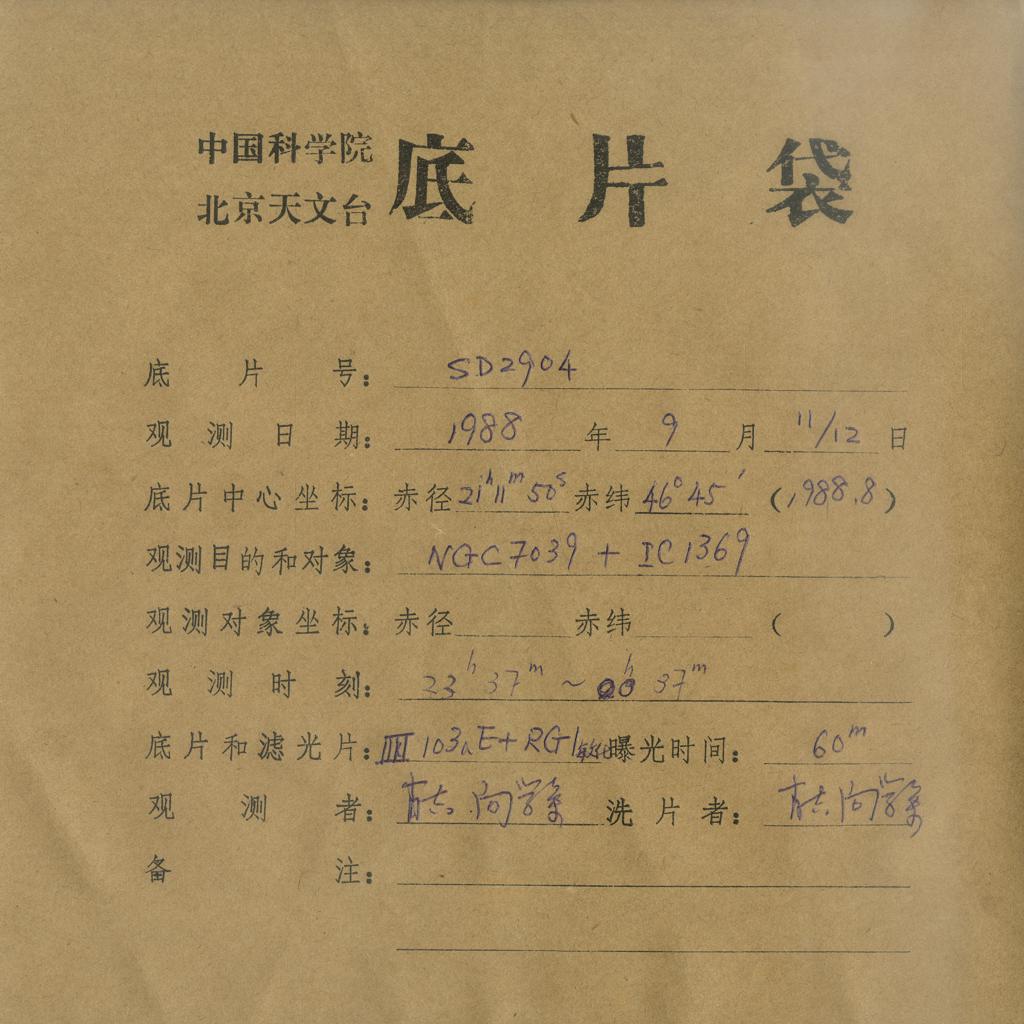 中国科学院
北京天文台
底片袋
底片号: SD2904
观测日期: 1988年9月11/12日
底片中心坐标: 赤径21h11m50s赤纬46°45′(1988.8)
观测目的和对象: NGC7039 + IC1369
观测对象坐标: 赤径 赤纬 ( )
观测时刻: 23h37m~00h37m
底片和滤光片: 103aE+RG1敏化 曝光时间: 60m
观测者: 洗片者:
备注: